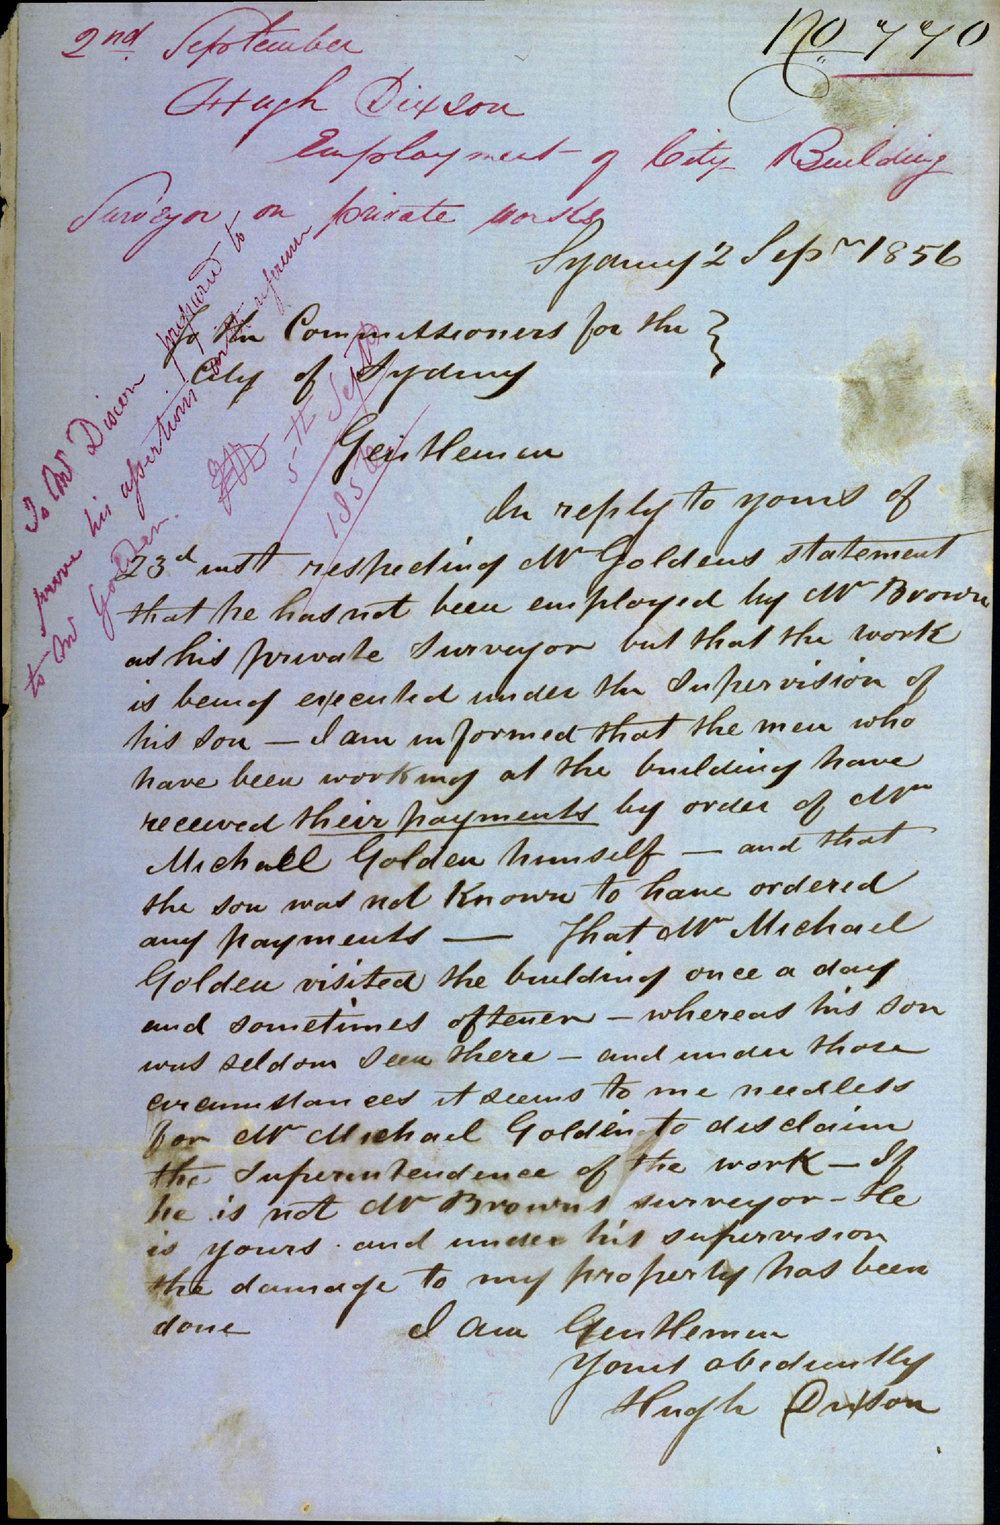 No 770
2nd September
Hugh Dixson
Employment of City Building
Surveyor, on private works
Sydney 2 Sepr 1856
To the Commissioners for the
City of Sydney
Gentlemen
In reply to yours of
23d inst respecting Mr Goldens statement
that he has not been employed by Mr Brown
as his private Surveyor but that the work
is being executed under the Supervision of
his son — I am informed that the men who
have been working at the building have
received their payments by order of Mr
Michael Golden himself — and that
the son was not Known to have ordered
any payments — That Mr Michael
Golden visited the building once a day
and sometimes oftener — whereas his son
was seldom seen there — and under those
circumstances it seems to me needless
for Mr Michael Golden to disclaim
the Superintendence of the work — If
he is not Mr Browns surveyor - He
is yours and under his supervision
the damage to my property has been
done I am Gentlemen
Yours obediently
Hugh Dixson
Is Mr Dixson prepared to
prove his assertions with reference
to Mr Golden.
5th Septr
1856